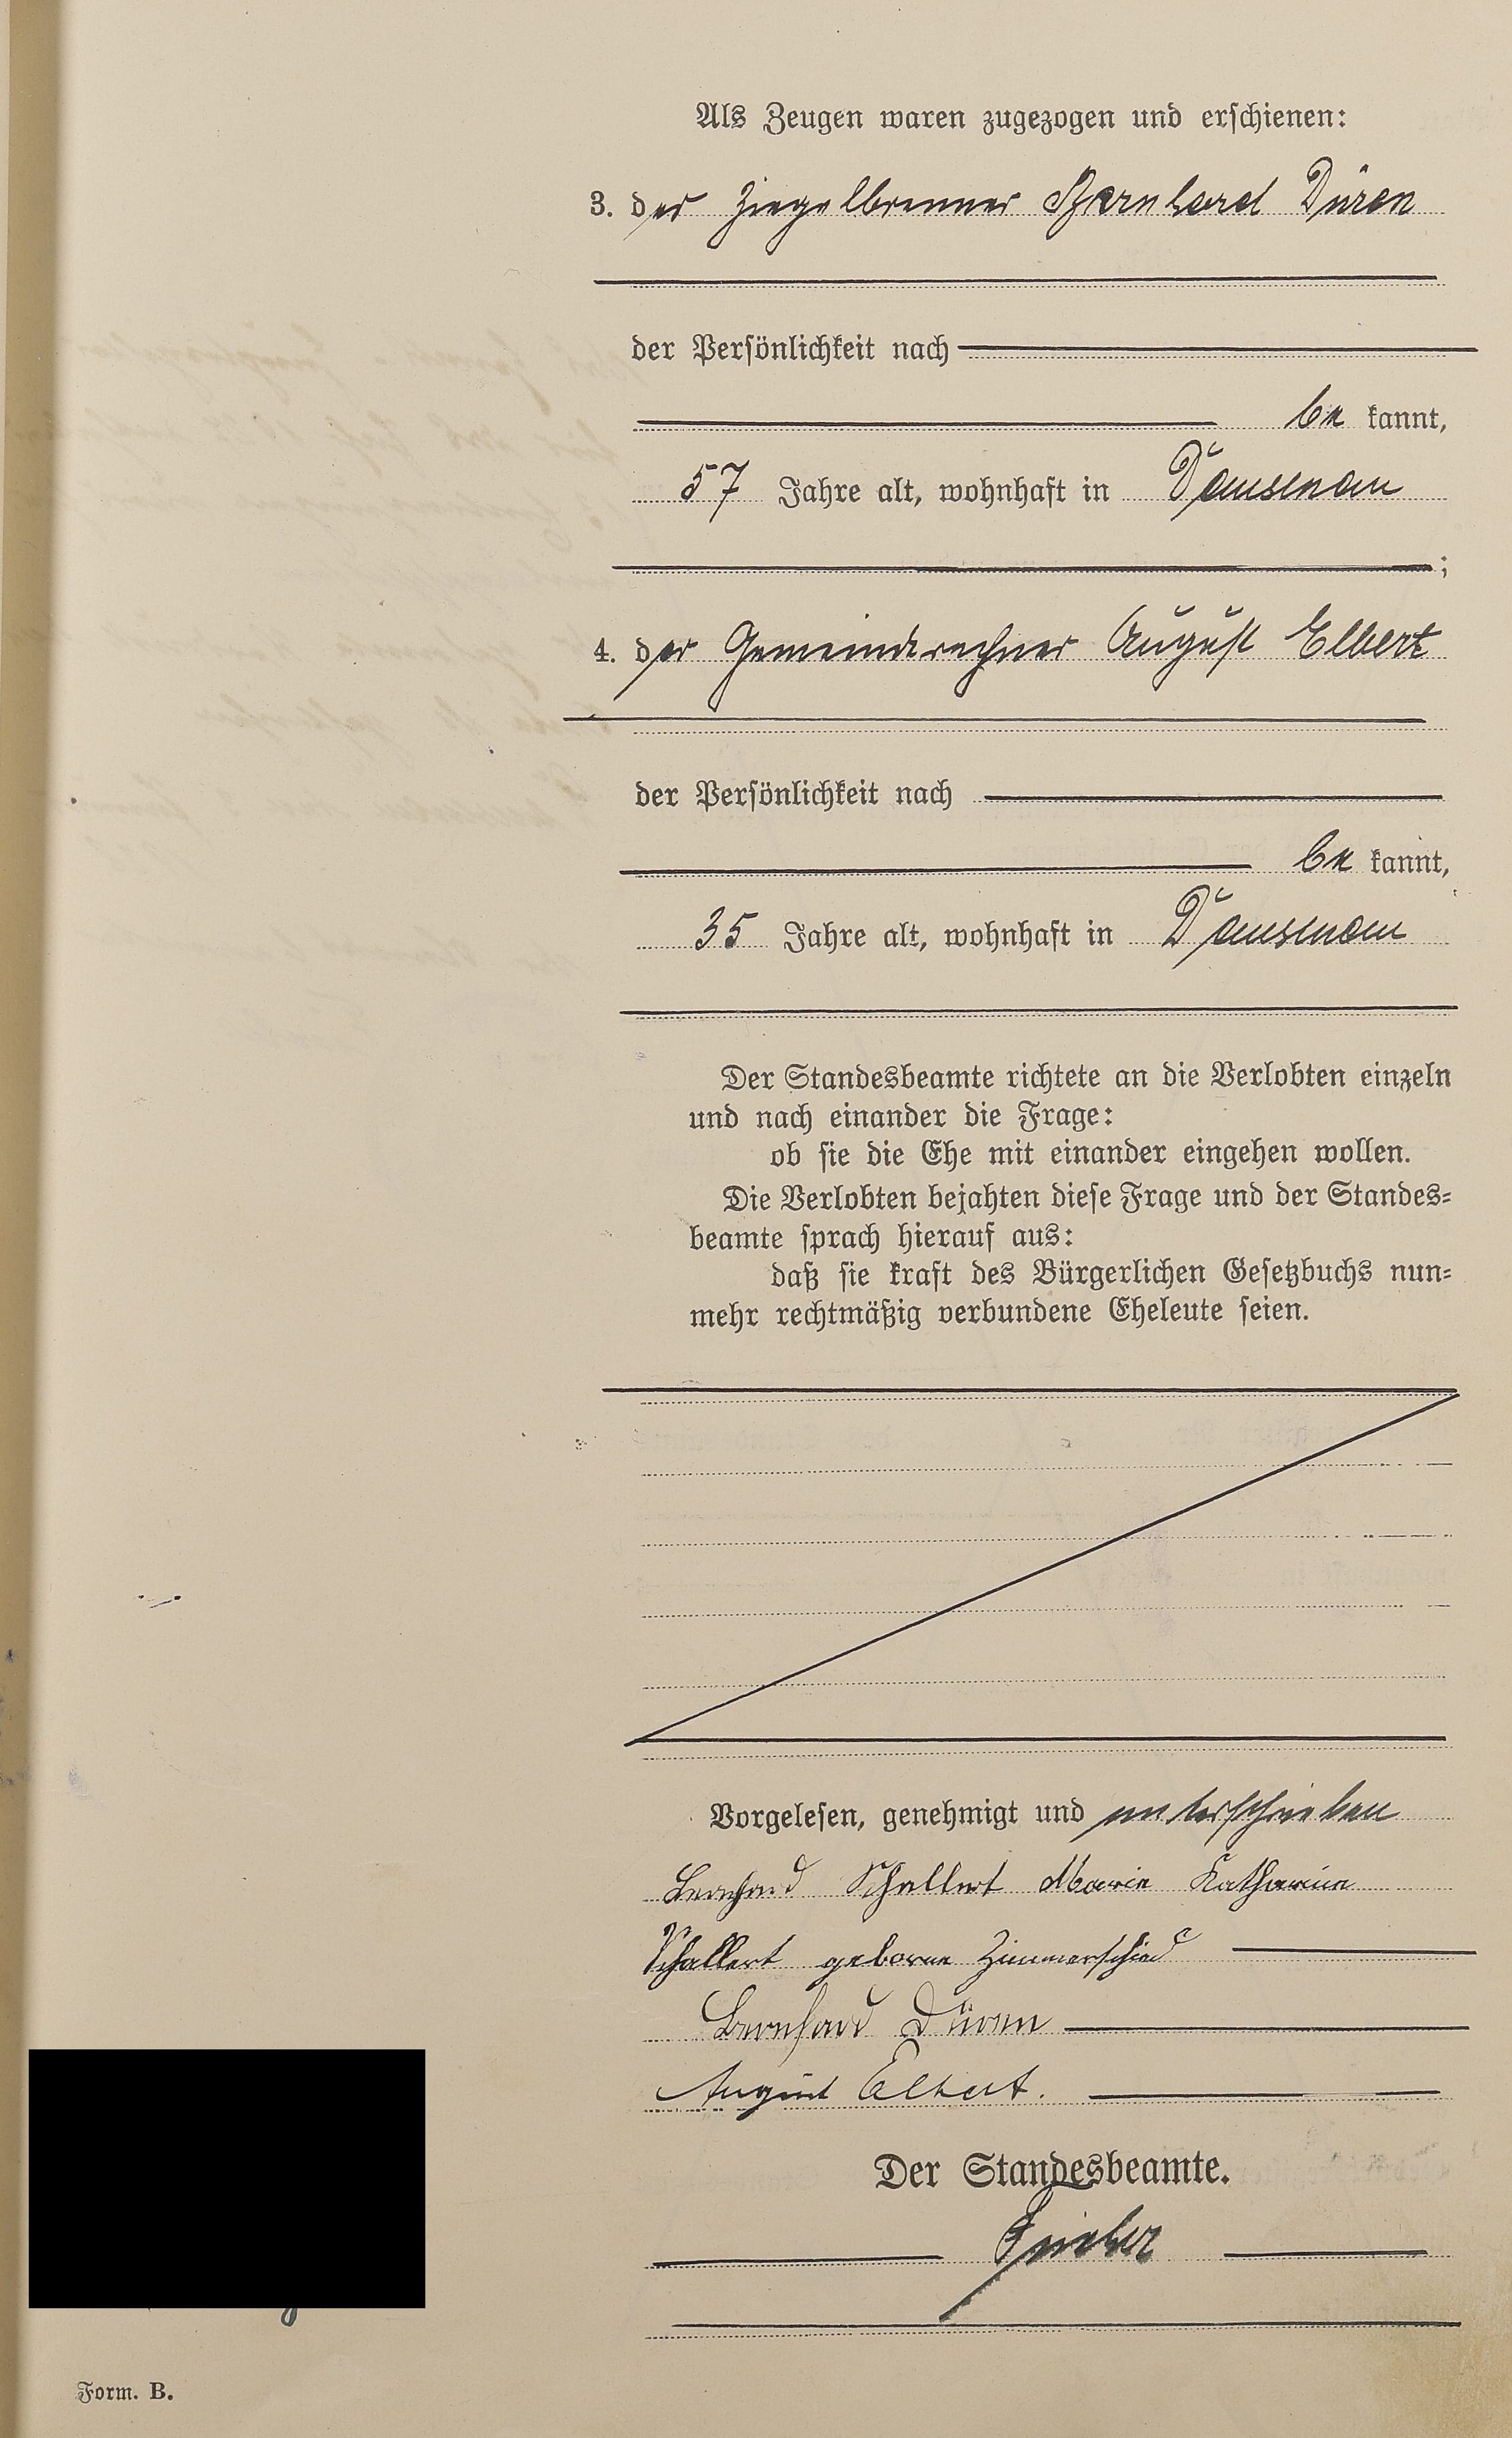 Als Zeugen waren zugezogen und erschienen:
3. der Ziegelbrenner Bernhard Düren
der Persönlichkeit nach
be kannt,
57 Jahre alt, wohnhaft in Dausenau
;
4. der Gemeinderechner August Elbert
der Persönlichkeit nach
be kannt,
35 Jahre alt, wohnhaft in Dausenau
Der Standesbeamte richtete an die Verlobten einzeln
und nach einander die Frage:
ob sie die Ehe mit einander eingehen wollen.
Die Verlobten bejahten diese Frage und der Standes-
beamte sprach hierauf aus:
daß sie kraft des Bürgerlichen Gesetzbuchs nun-
mehr rechtmäßig verbundene Eheleute seien.
Vorgelesen, genehmigt und unterschrieben
Bernhard Schallert Marie Katharine
Schallert geborne Zimmerschied
Bernhard Düren
August Elbert.
Der Standesbeamte.
Form. B.